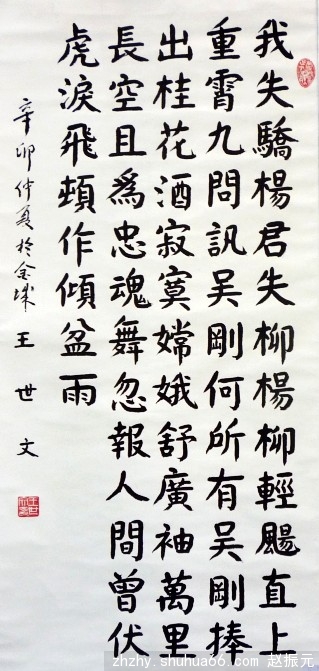 我失驕楊君失柳楊柳輕颺直上
重霄九問訊吳剛何所有吳剛捧
出桂花酒寂寞嫦娥舒廣袖萬里
長空且為忠魂舞忽報人間曾伏
虎淚飛頓作傾盆雨
辛卯仲夏於金城
王世文
zhzhy.shuhua66.com 赵振元